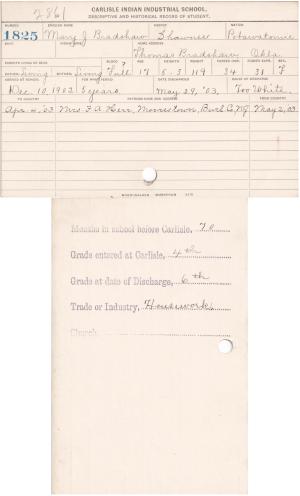 2861
CARLISLE INDIAN INDUSTRIAL SCHOOL.
DESCRIPTIVE AND HISTORICAL RECORD OF STUDENT.
NUMBER ENGLISH NAME AGENCY NATION
1825 Mary J Bradshaw Shawnee Potawatomie
INDIAN NAME HOME ADDRESS
Thomas Bradshaw, Okla.
PARENTS LIVING OR DEAD BLOOD AGE HEIGHT WEIGHT FORCED INSP. FORCED EXPR. SEX
Living Living Full 17 5-3 119 34 31 F
ARRIVED AT SCHOOL FOR WHAT PERIOD DATE DISCHARGED CAUSE OF DISCHARGE
Dec. 10, 1902. 5 years. May 29, '03. Too White.
TO COUNTRY PATRONS NAME AND ADDRESS FROM COUNTRY
Apr 4, '03 Mrs F A Herr, Morristown, Burl Co, NJ. May 2, 03
Months in school before Carlisle, 70
Grade entered at Carlisle, 4th
Grade at date of Discharge, 6th
Trade or Industry, Housework,
Church,